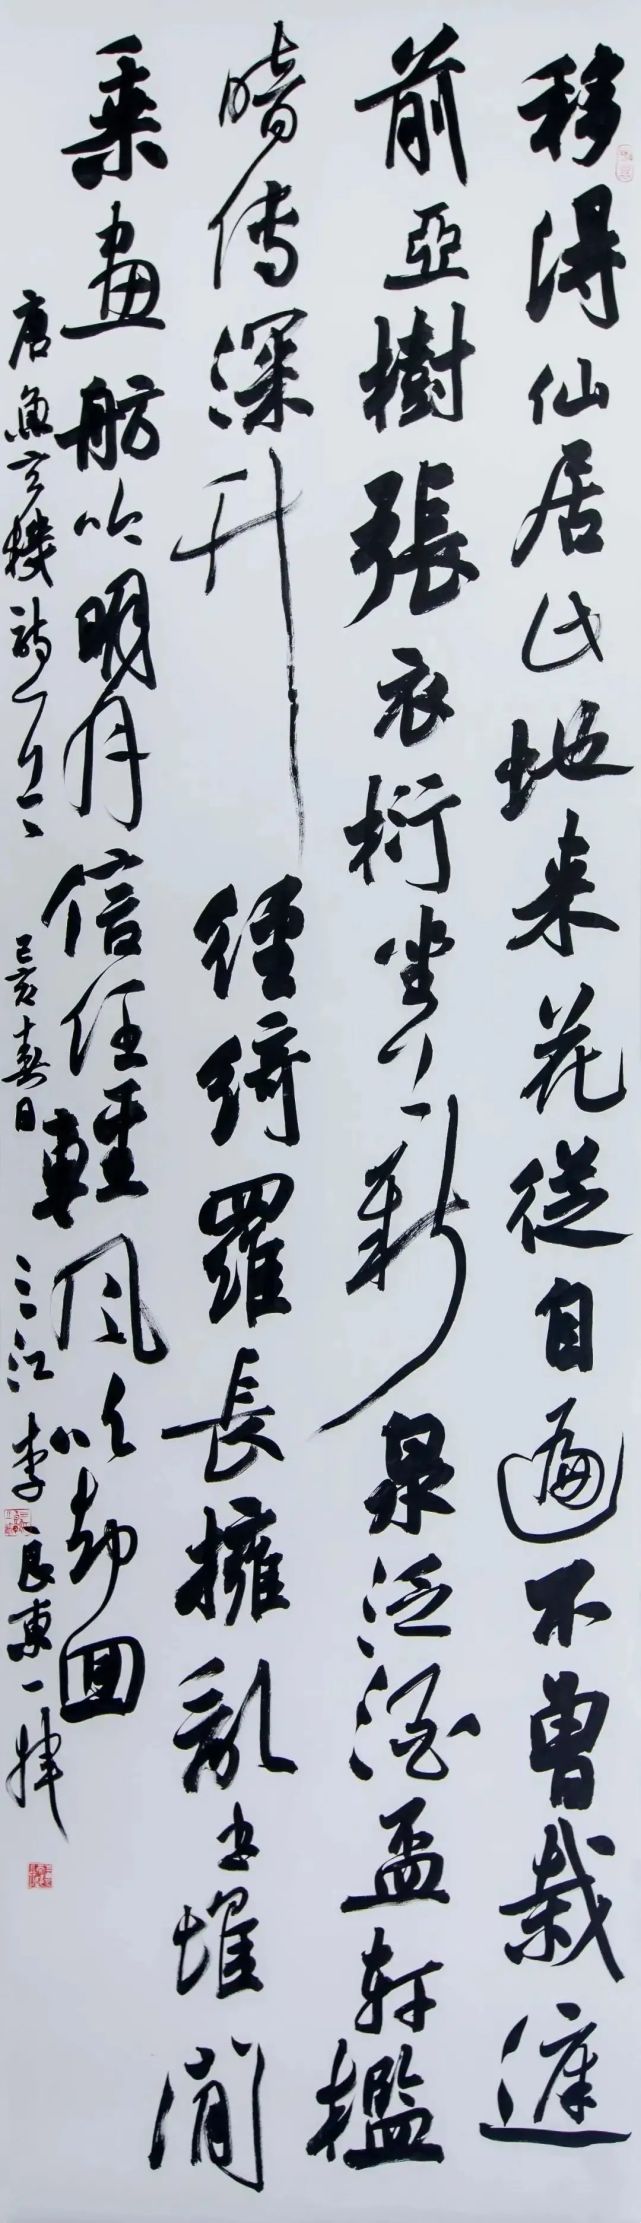 移得仙居此地来花從自遍不曾栽庭
前亞樹張衣桁坐上新泉泛酒盃軒檻
暗傳深竹徑綺羅長擁亂書堆閒
乘畫舫吟明月信任輕風吹却回
唐魚玄機詩一首 己亥春日 三江李良東一揮